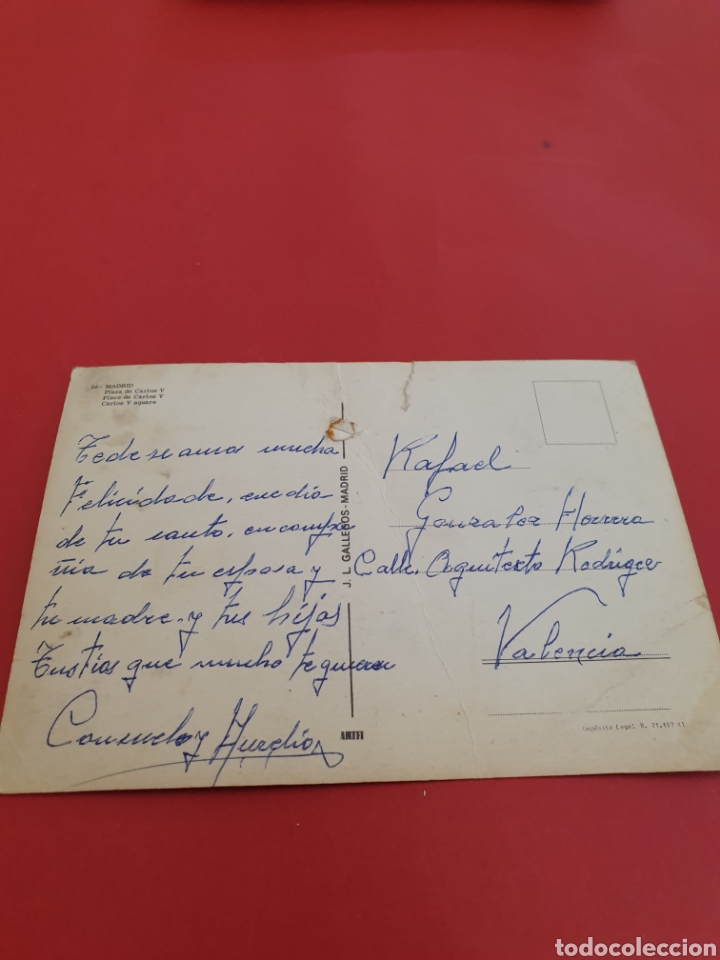 MADRID
Plaza de Carlos V
Place de Carlos V
Carlos V square
Tedeseamos mucha
Felicidade, en edia
de tu santo, en compa
ñia de tu esposa y
tu madre. y tus hijos
Tustios que mucho te quieren
Consuelo y Aurelio
J. L. GALLEGOS - MADRID
ARTFI
Rafael
Gonzalez Herrera
Calle. Aquitexto Rodriguez
Valencia
Depósito Legal B.
todocoleccion